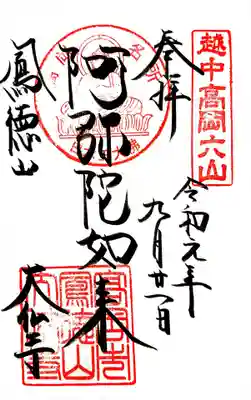 越中高岡六山
奉拝
令和元年
九月廿一日
阿弥陀如来
鳳徳山
大仏寺